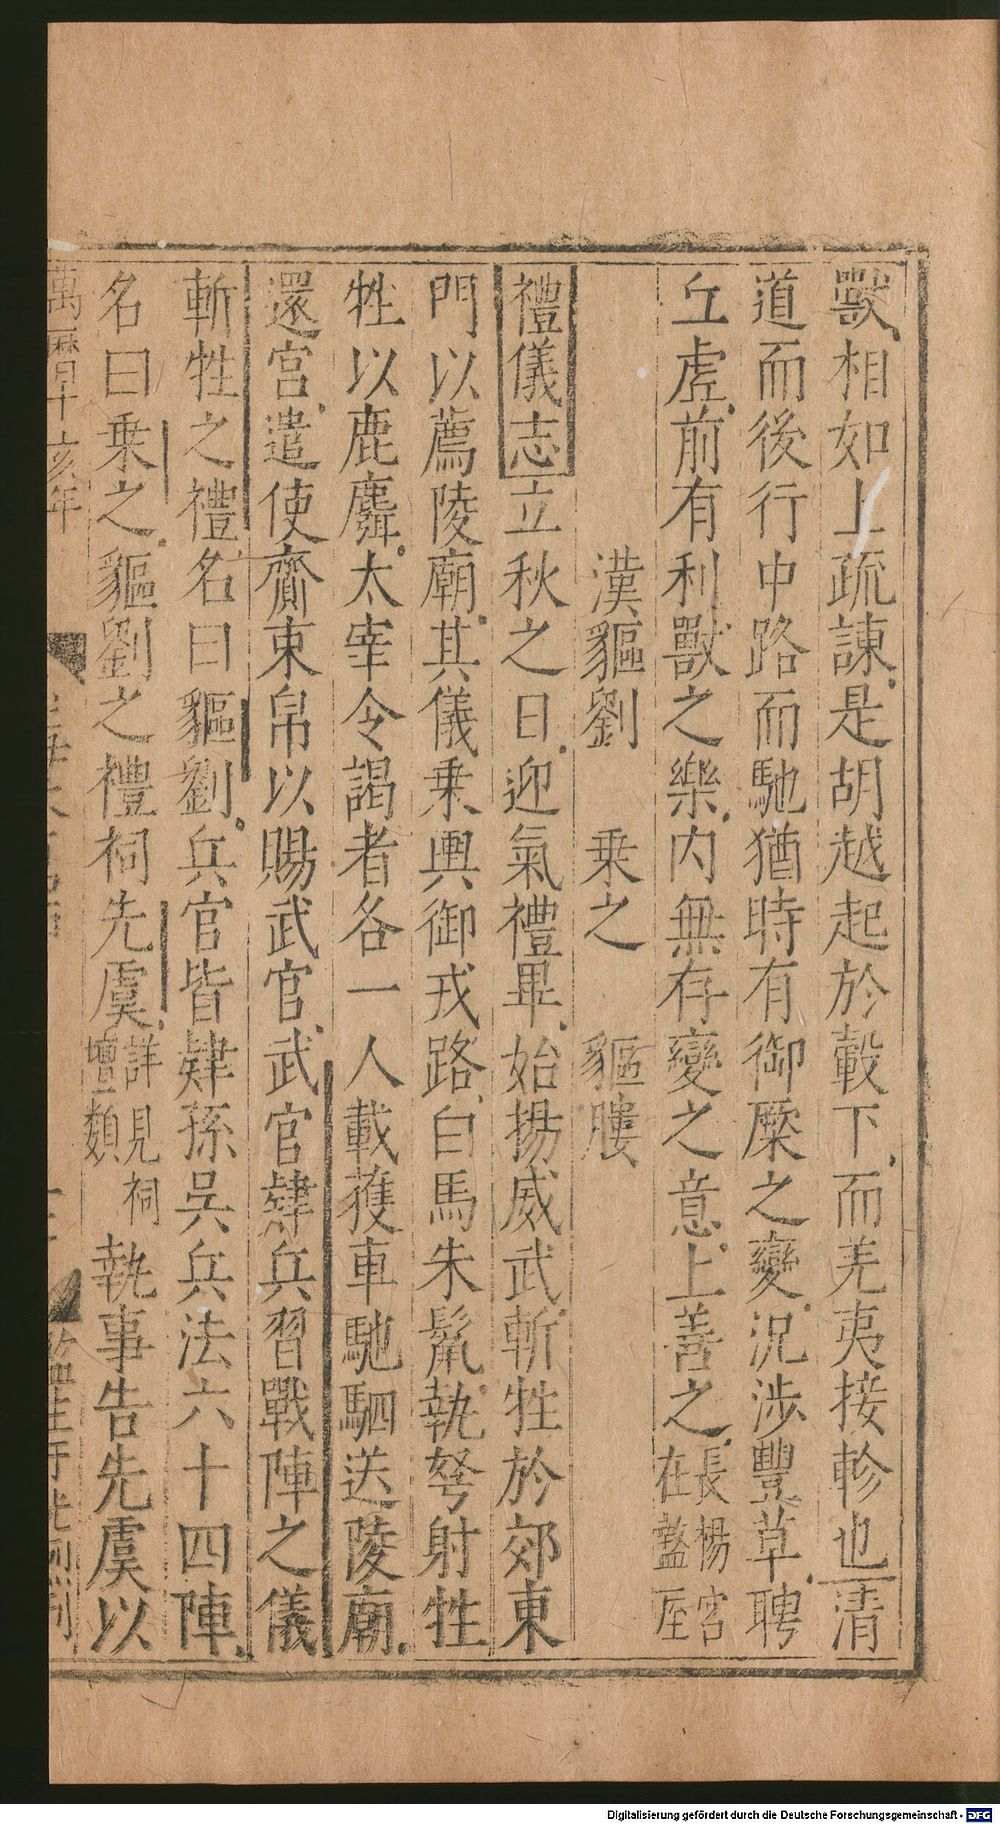 獸相如上疏諫是胡越起於轂下而羌夷接軫也清
道而後行中路而馳猶時有御橜之變況涉豐草聘
丘虛前有利獸之樂内無存變之意上善之長楊宮在盩厔
漢貙劉 乗之 貙膢
禮儀志立秋之日迎氣禮畢始揚威武斬牲於郊東
門以薦陵廟其儀乗輿御戎路白馬朱鬣執弩射牲
牲以鹿麛太宰令謁者各一人載獲車馳駟送陵廟
還宮遣使齎束帛以賜武官武官肄兵習戰陣之儀
斬牲之禮名曰貙劉兵官皆肄孫吳兵法六十四陣
名曰乗之貙劉之禮祠先虞詳見祠壇類執事告先虞以
萬曆 十 亥年
監生于光
Digitalisierung gefördert durch die Deutsche Forschungsgemeinschaft - DFG